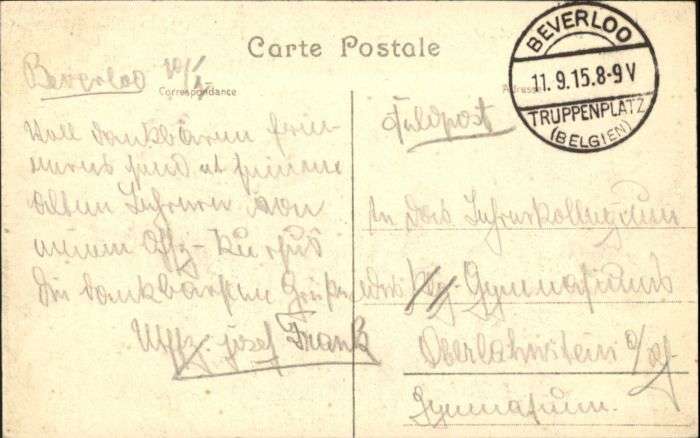 Carte Postale
Correspondance
Adresse
BEVERLOO
11.9.15.8-9V
TRUPPENPLATZ
(BELGIEN)
Beverloo 10/
Voll dankbarem
sendet seinen
alten Lehrern von
meinem Offz-Kursus
die dankbarsten Grüße
Uffz. Josef Frank
Feldpost
An das Lehrerkollegium
des Kgl-Gymnasiums
Oberlahnstein a/
Gymnasium.